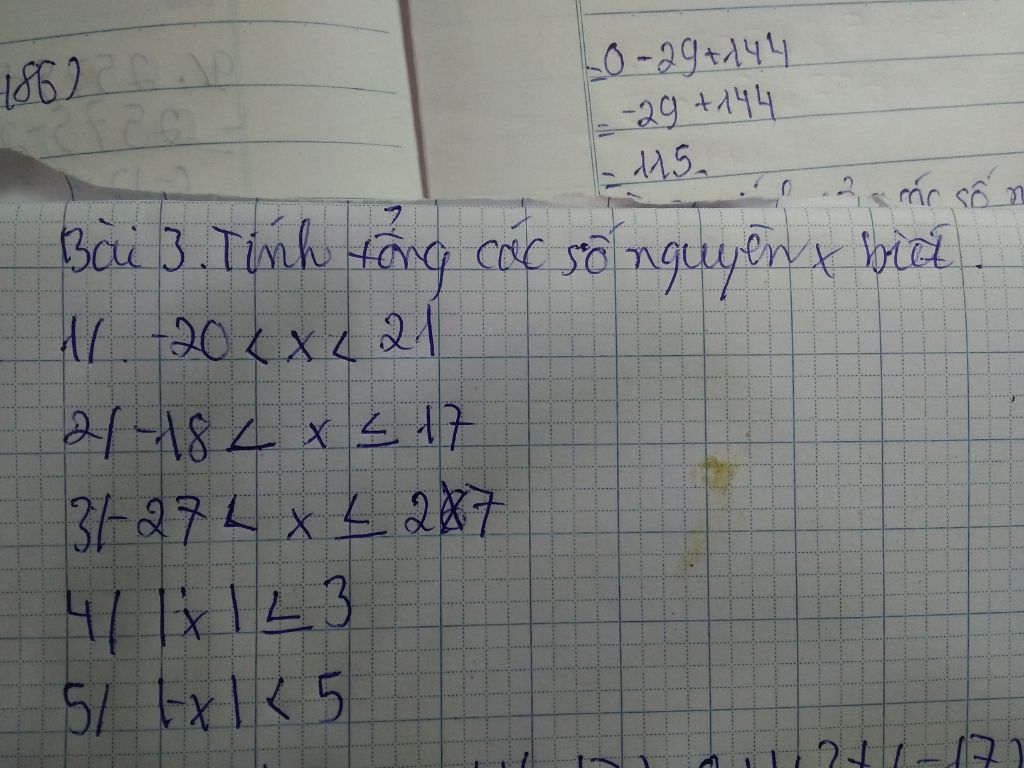 186)
= 0 - 29 + 144
= -29 + 144
= 115.
các số n
Bài 3. Tính tổng các số nguyên x biết.
1/. -20 < x < 21
2/ -18 < x ≤ 17
3/ -27 < x ≤ 27
4/ |x| ≤ 3
5/ |-x| < 5